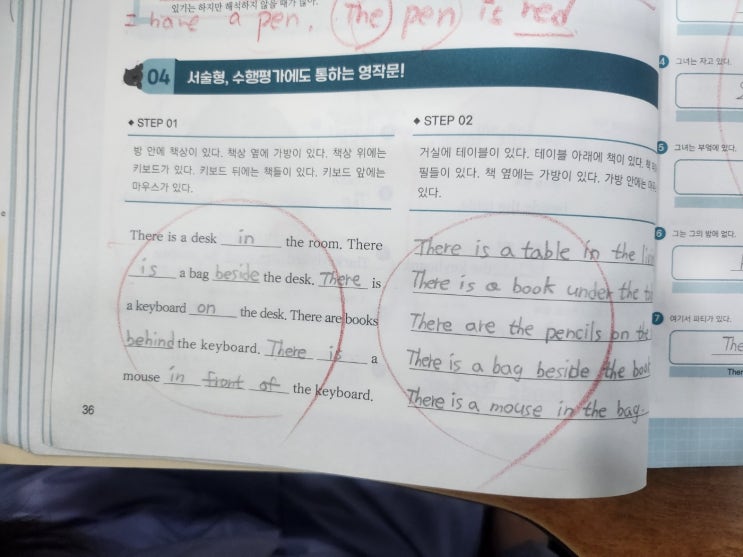 있기는 하지만 해석하지 않을 때가 많아.
I have a pen. The pen is red
04 서술형, 수행평가에도 통하는 영작문!
◆ STEP 01
방 안에 책상이 있다. 책상 옆에 가방이 있다. 책상 위에는
키보드가 있다. 키보드 뒤에는 책들이 있다. 키보드 앞에는
마우스가 있다.
There is a desk in the room. There
is a bag beside the desk. There is
a keyboard on the desk. There are books
behind the keyboard. There is a
mouse in front of the keyboard.
36
◆ STEP 02
거실에 테이블이 있다. 테이블 아래에 책이 있다. 책
필들이 있다. 책 옆에는 가방이 있다. 가방 안에는
있다.
There is a table in the
There is a book under the
There are the pencils on the
There is a bag beside the
There is a mouse in the bag.
4 그녀는 자고 있다.
5 그녀는 부엌에 있다.
6 그는 그의 방에 없다.
7 여기서 파티가 있다.
The
Ther